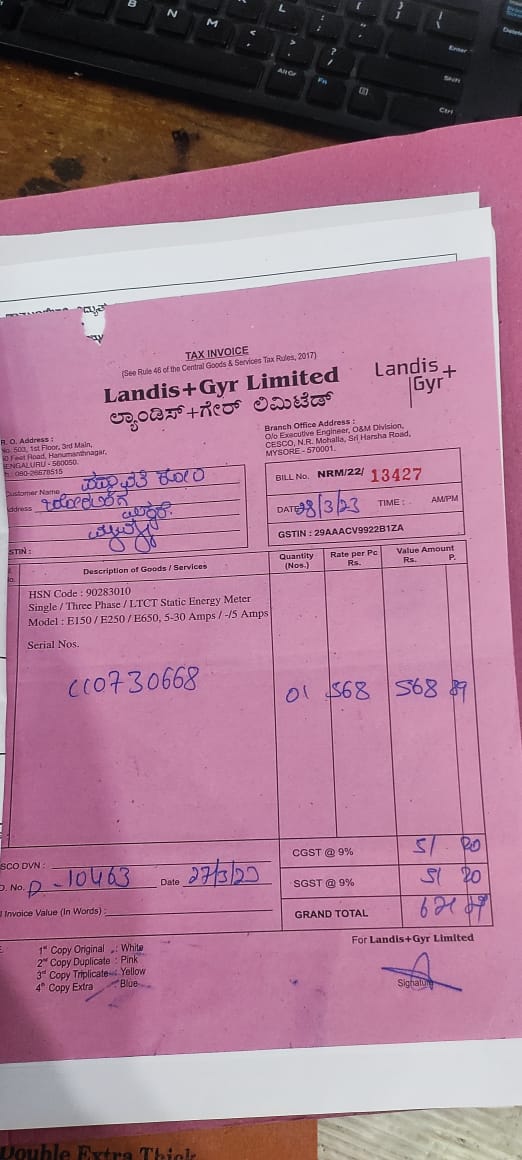 B N M L
< > ? /
AltGr Fn Ctrl
Enter
Shift
Delete
TAX INVOICE
(See Rule 46 of the Central Goods & Services Tax Rules, 2017)
Landis+Gyr Limited
ಲ್ಯಾಂಡಿಸ್+ಗೇರ್ ಲಿಮಿಟೆಡ್
Landis+
Gyr
R. O. Address :
No. 503, 1st Floor, 3rd Main,
Feet Road, Hanumanthnagar,
BENGALURU - 560050.
080-26678515
Branch Office Address :
O/o Executive Engineer, O&M Division,
CESCO, N.R. Mohalla, Sri Harsha Road,
MYSORE - 570001.
Customer Name
Address
STIN :
BILL No. NRM/22/ 13427
DATE 28/3/23 TIME : AM/PM
GSTIN : 29AAACV9922B1ZA
Description of Goods / Services
Quantity (Nos.)
Rate per Pc Rs.
Value Amount Rs. P.
HSN Code : 90283010
Single / Three Phase / LTCT Static Energy Meter
Model : E150 / E250 / E650, 5-30 Amps / -/5 Amps
Serial Nos.
CC0730668 01 568 568 89
CGST @ 9% 51 20
SGST @ 9% 51 20
GRAND TOTAL
SCO DVN :
O. No. D-10463 Date 27/3/23
Invoice Value (In Words) :
For Landis+Gyr Limited
1st Copy Original : White
2nd Copy Duplicate : Pink
3rd Copy Triplicate : Yellow
4th Copy Extra : Blue
Signature
Double Extra Thick